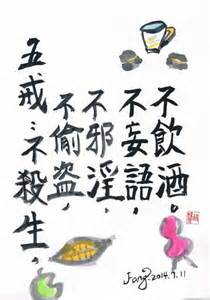 五戒：不殺生，
不偷盜，
不邪淫，
不妄語，
不飲酒。
Fang